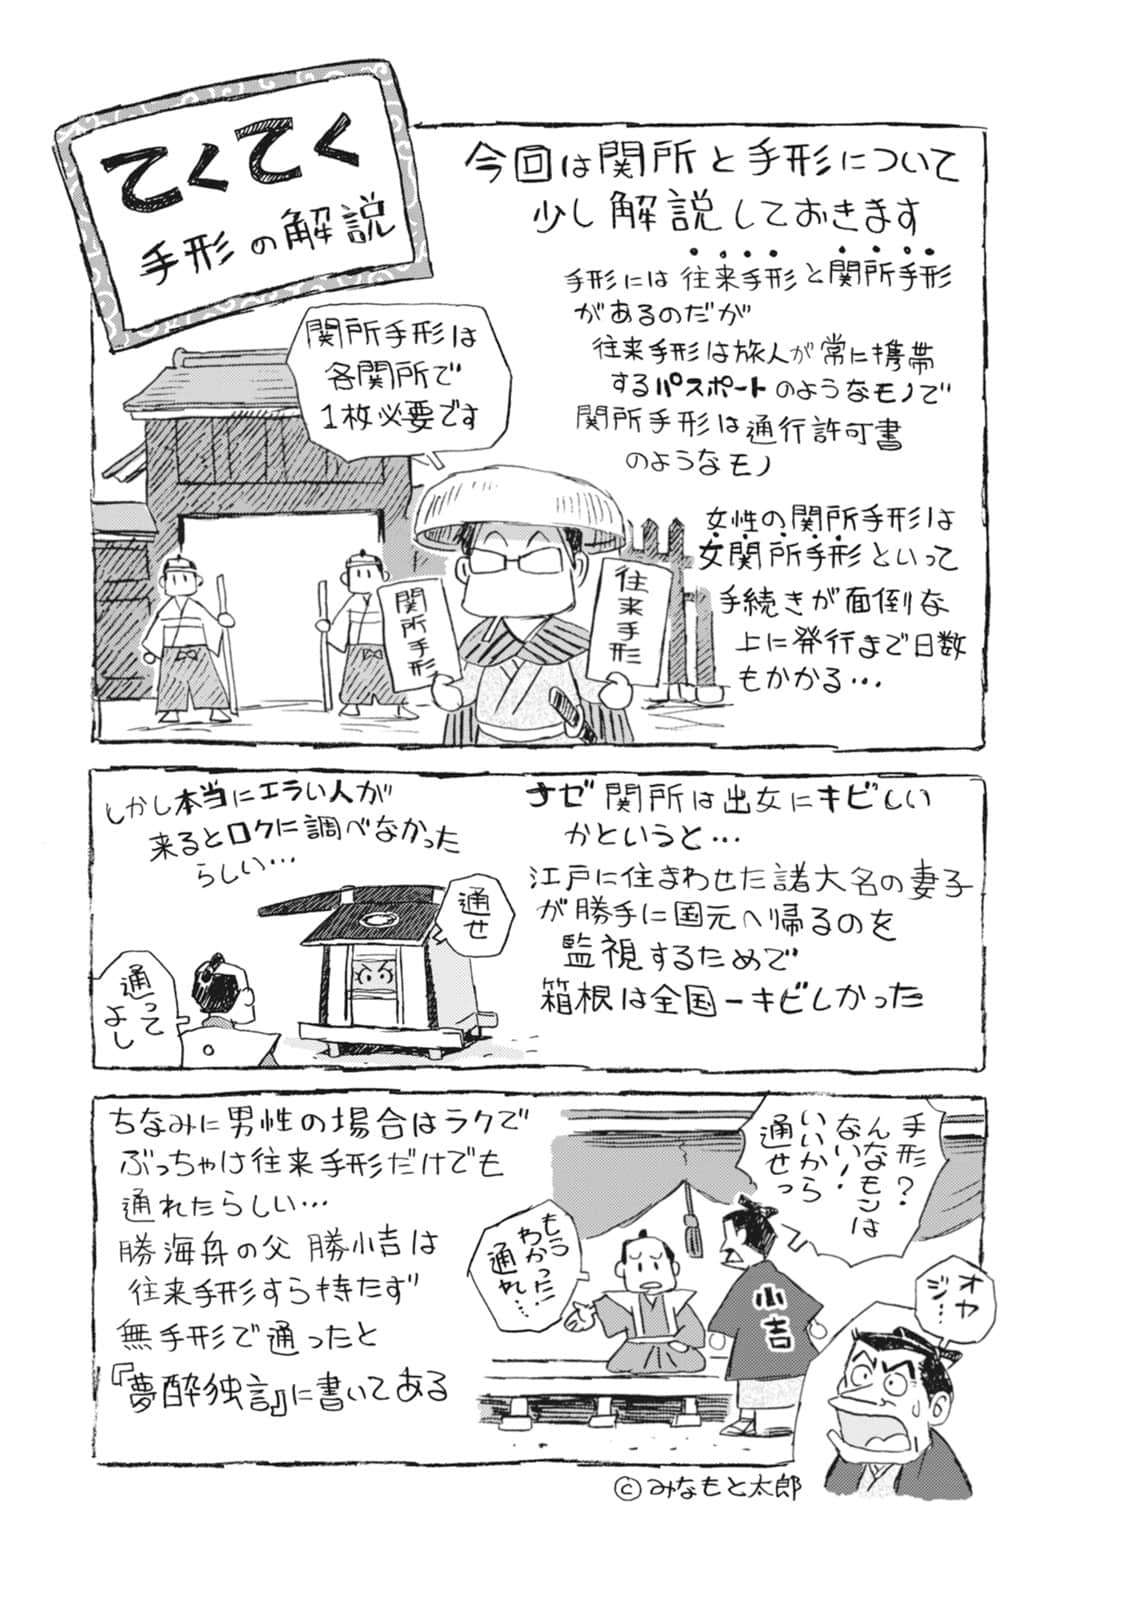 てくてく
手形の解説
今回は関所と手形について
少し解説しておきます
手形には往来手形と関所手形
があるのだが
往来手形は旅人が常に携帯
するパスポートのようなモノで
関所手形は通行許可書
のようなモノ
関所手形は
各関所で
1枚必要です
女性の関所手形は
女関所手形といって
手続きが面倒な
上に発行まで日数
もかかる…
関所手形
往来手形
ナゼ関所は出女にキビしい
かというと…
江戸に住まわせた諸大名の妻子
が勝手に国元へ帰るのを
監視するためで
箱根は全国一キビしかった
しかし本当にエラい人が
来るとロクに調べなかった
らしい…
通せ
通って
よし
ちなみに男性の場合はラクで
ぶっちゃけ往来手形だけでも
通れたらしい…
勝海舟の父 勝小吉は
往来手形すら持たず
無手形で通ったと
『夢酔独言』に書いてある
手形？
んなモンは
ない！
いいから
通せっ
もう
わかった！
通れ…
小吉
オヤ
ジ…
©みなもと太郎